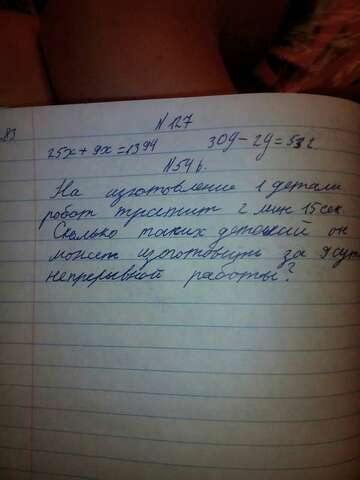 83
N 127
25x + 9x = 1394 30y - 2y = 532
N 546.
На изготовление 1 детали
робот тратит 2 мин 15 сек
Сколько таких деталий он
может изготовить за 9 сут
непрерывной работы?